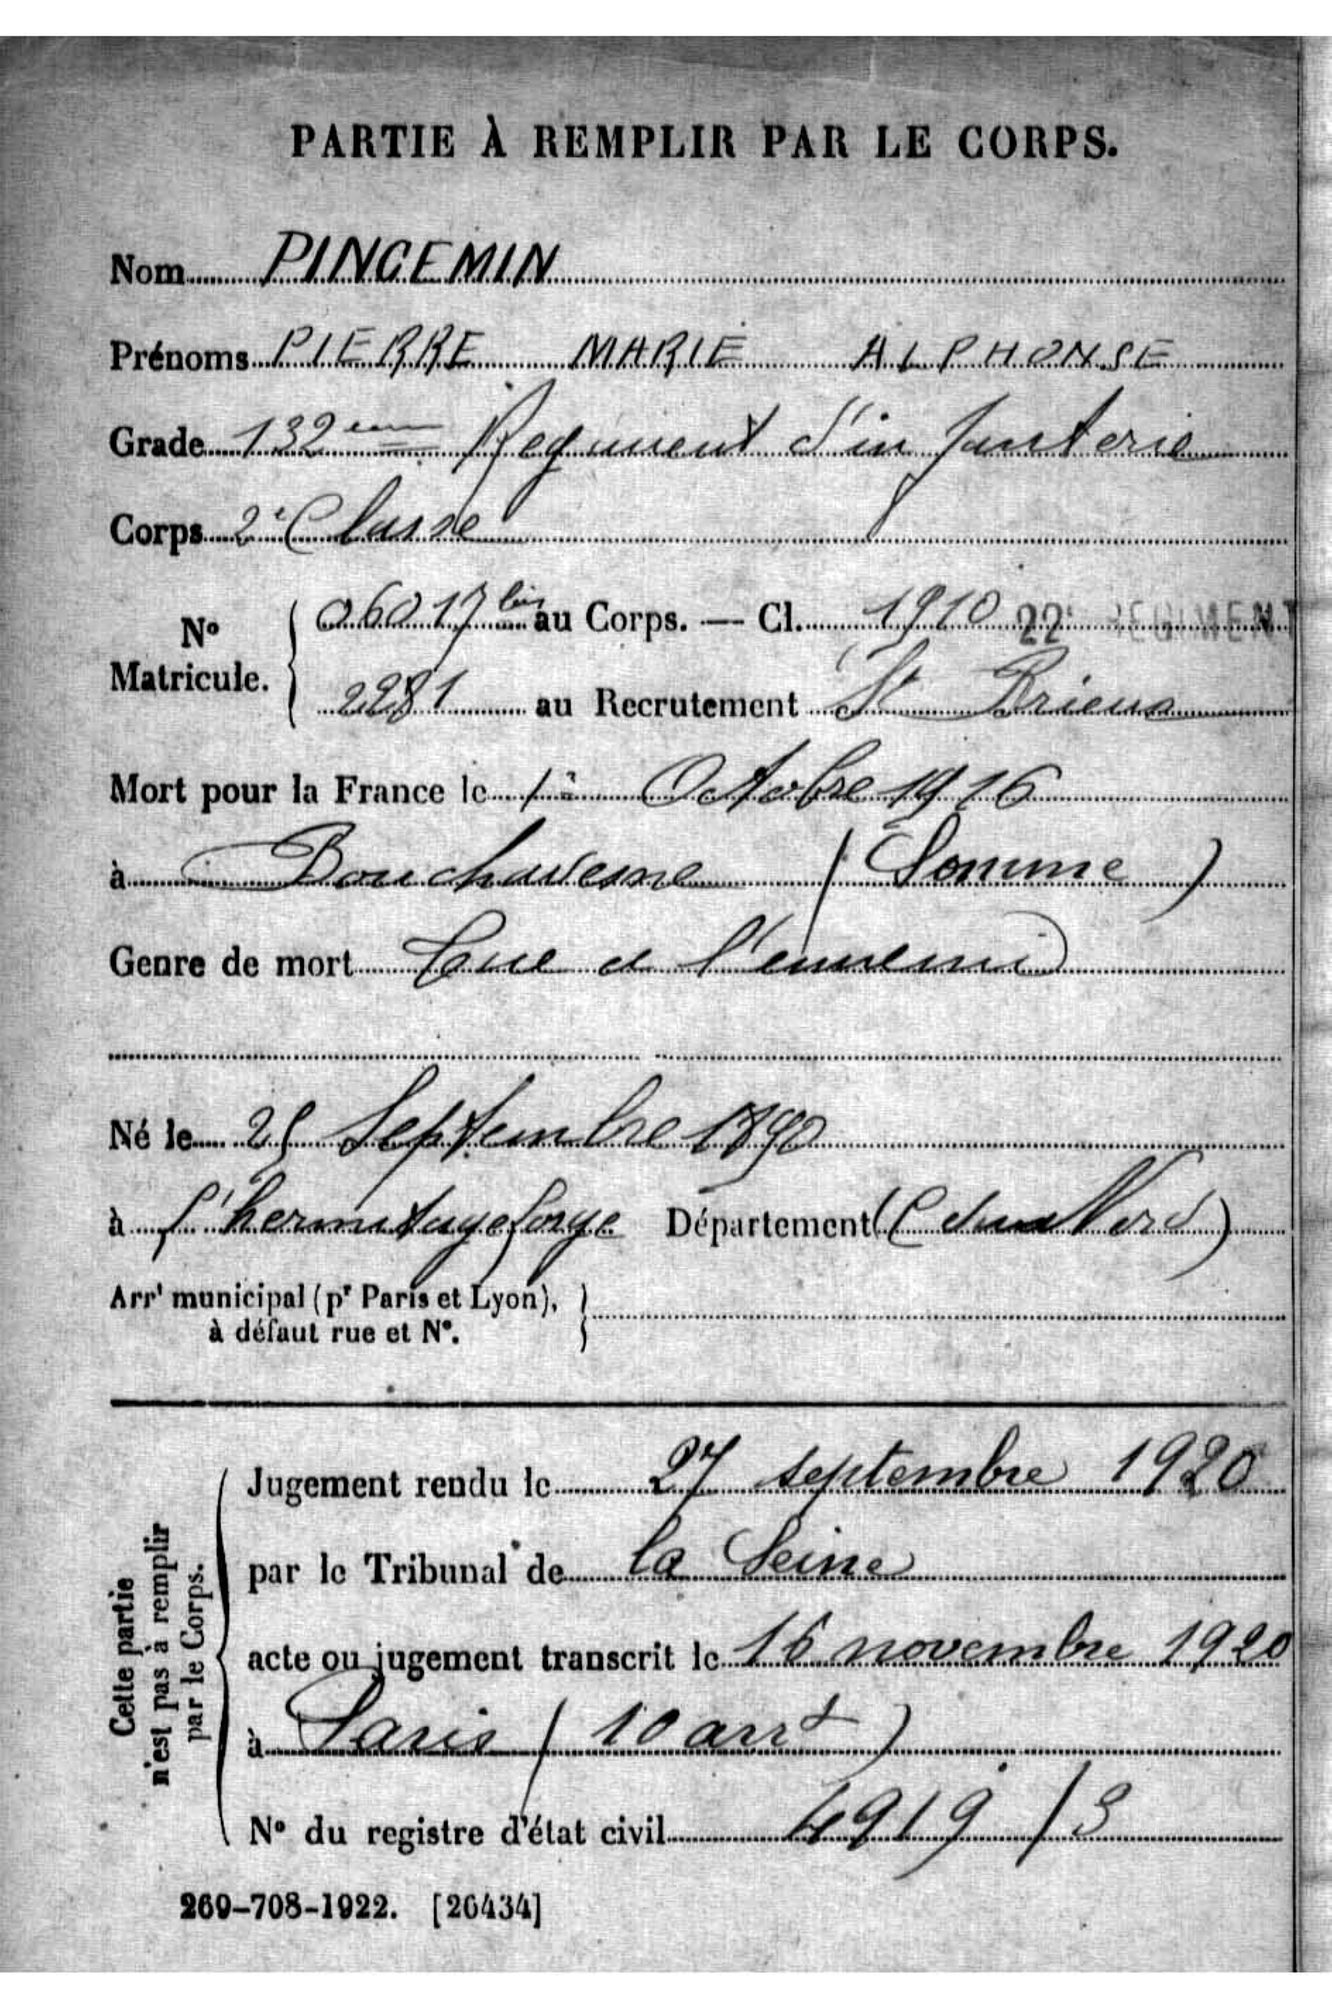 PARTIE À REMPLIR PAR LE CORPS.
Nom PINCEMIN
Prénoms PIERRE MARIE ALPHONSE
Grade 132eme Regiment d'infanterie
Corps 2e Classe
N° Matricule. 06017 bis au Corps. — Cl. 1910 22e REGIMENT
2281 au Recrutement St Brieuc
Mort pour la France le 1er Octobre 1916
à Bouchavesne (Somme)
Genre de mort Tué à l'ennemi
Né le 25 Septembre 1890
à l'hermitage lorge Département (C du Nord)
Arrt municipal (pr Paris et Lyon),
à défaut rue et N°.
Cette partie
n'est pas à remplir
par le Corps.
Jugement rendu le 27 septembre 1920
par le Tribunal de la Seine
acte ou jugement transcrit le 16 novembre 1920
à Paris (10 arrt)
N° du registre d'état civil 4919/3
269-708-1922. [26434]